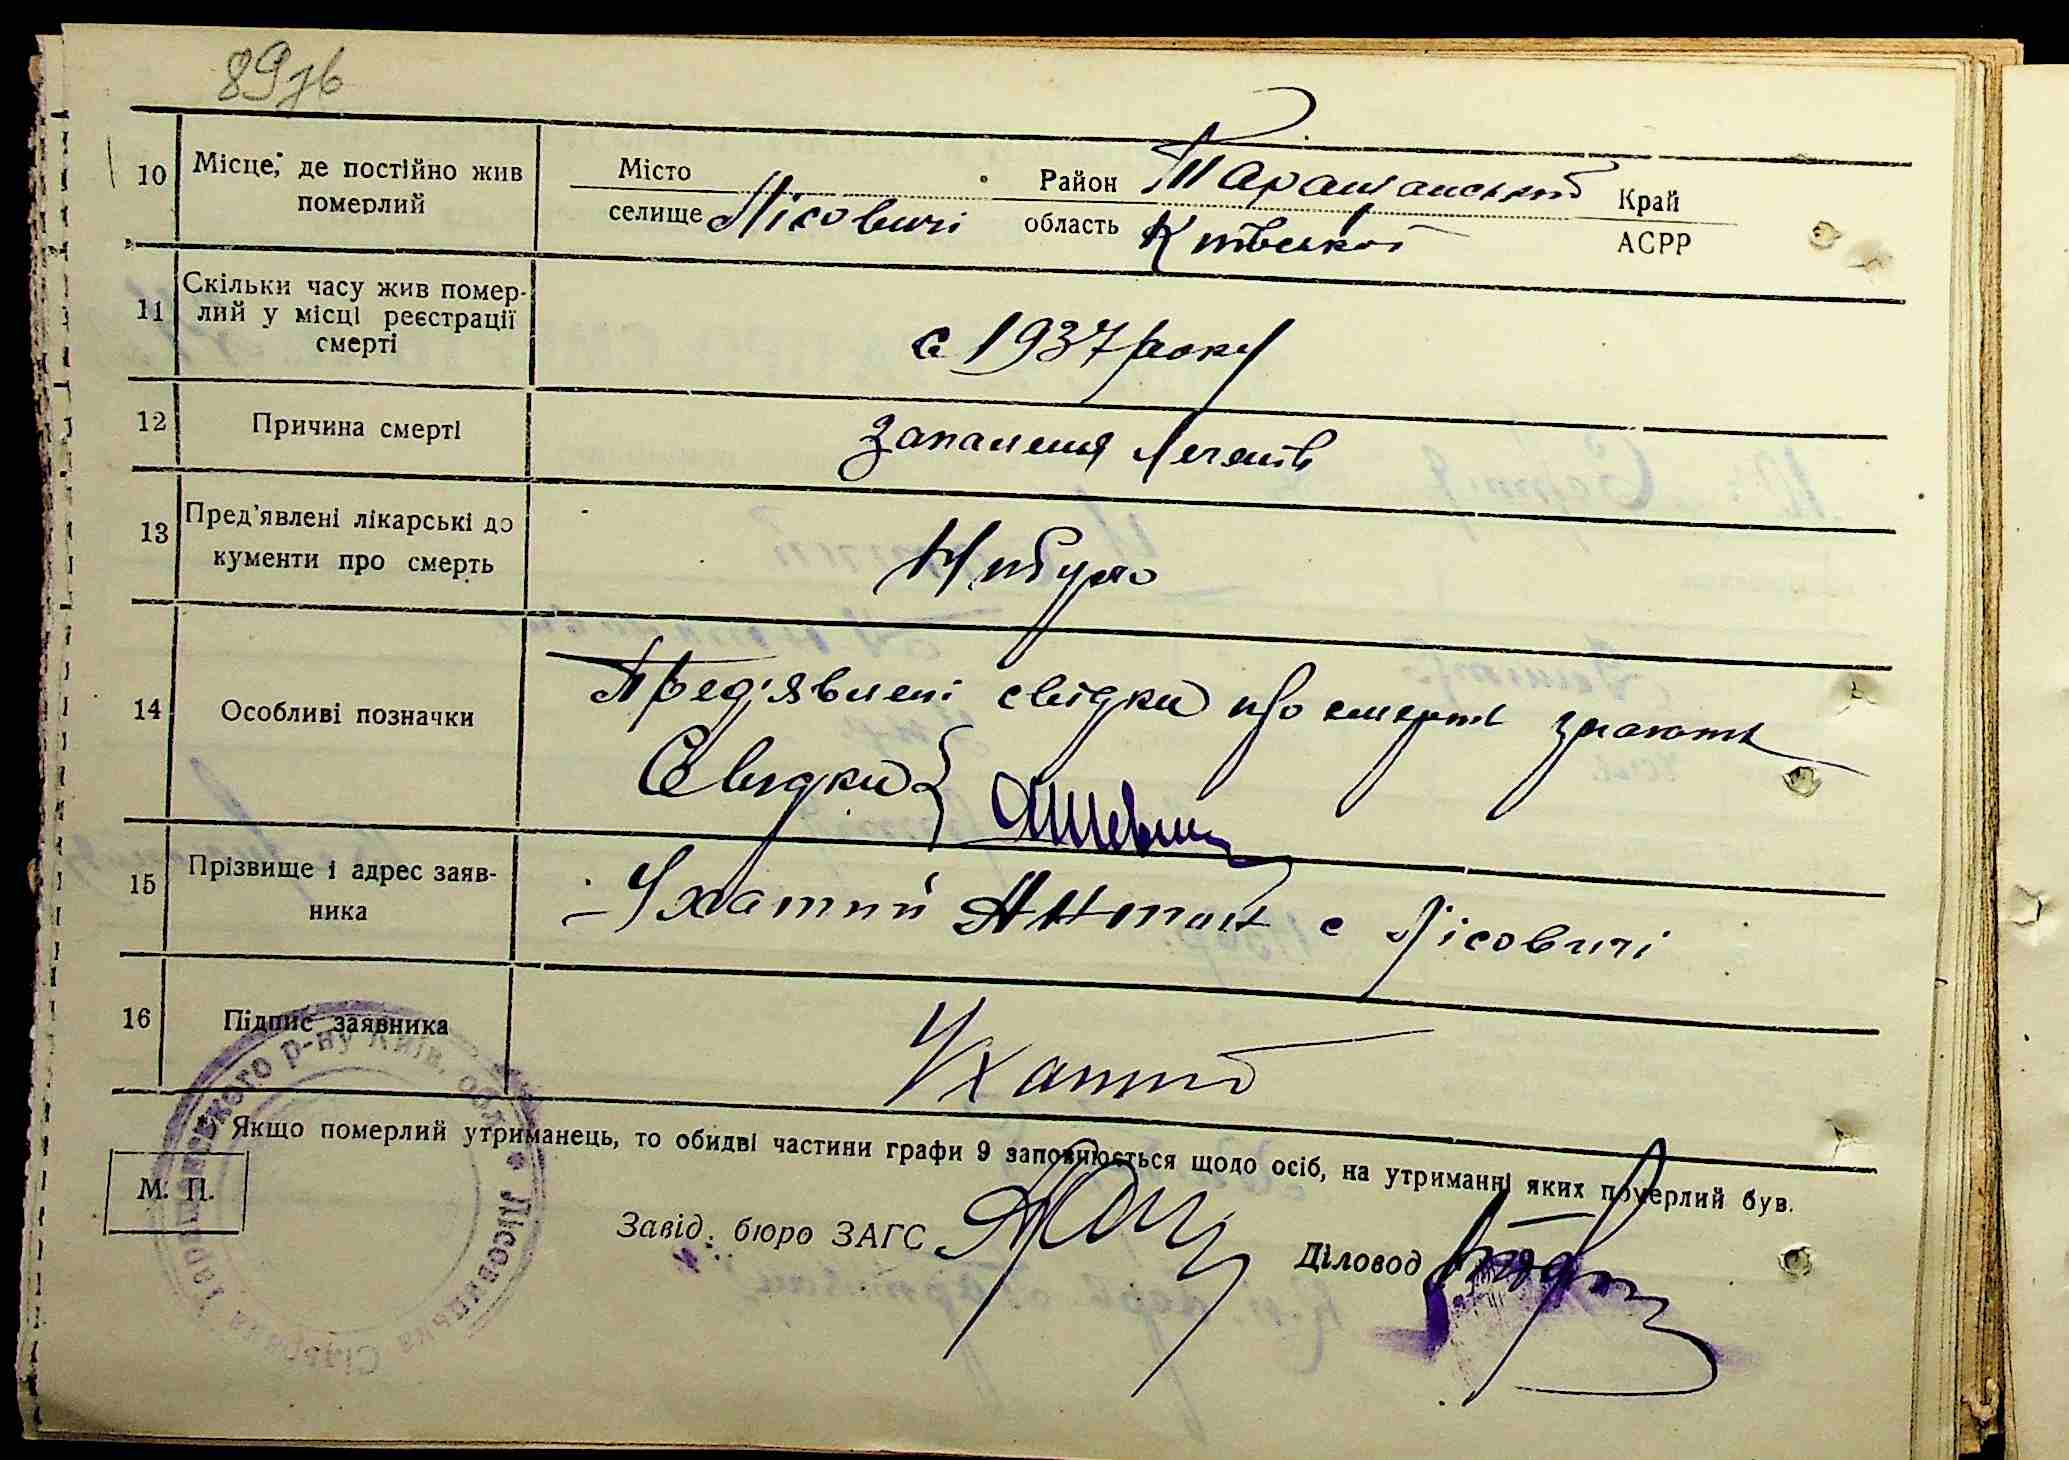 89зв
10 Місце, де постійно жив Місто Район Таращанський Край
померлий селище Лісовичі область Київської АСРР
11 Скільки часу жив помер-
лий у місці реєстрації
смерті
с 1937 року
12 Причина смерті запалення легенів
13 Пред'явлені лікарські до
кументи про смерть
Нибуло
14 Особливі позначки
Пред'явлені свідки про смерть знають
Свідки
15 Прізвище і адрес заяв-
ника
Ухатий Антон с Лісовичі
16 Підпис заявника Ухатий
Якщо померлий утриманець, то обидві частини графи 9 заповнюється щодо осіб, на утриманні яких померлий був.
М. П.
Завід. бюро ЗАГС Діловод
Лісовицька Сільрада Таращанського р-ну Київ. обл.